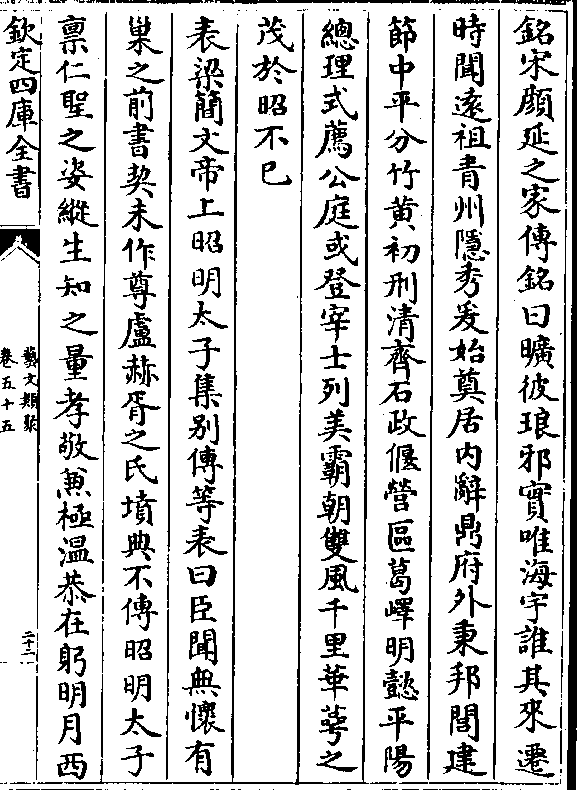 銘宋顔延之家傳銘曰曠彼琅邪實唯海宇誰其來遷
時聞遠祖青州隱秀爰始奠居内辭鼎府外秉邦閭建
節中平分竹黄初刑清齊石政偃營區葛嶧明懿平陽
總理式薦公庭或登宰士列美霸朝雙風千里華萼之
茂於昭不已
表梁簡文帝上昭明太子集别傳等表曰臣聞無懷有
巢之前書契未作尊盧赫胥之氏墳典不傳昭明太子
禀仁聖之姿縱生知之量孝敬兼極温恭在躬明月西
欽定四庫全書
藝文類聚
卷五十五
二十二